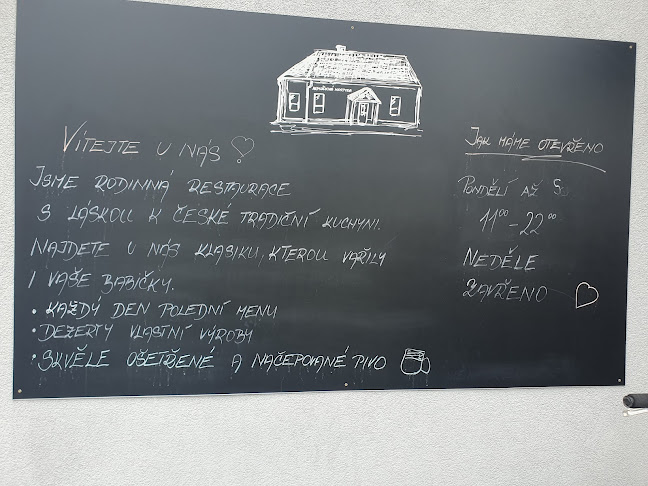 Vítejte u nás
Jsme rodinná restaurace
s láskou k české tradiční kuchyni.
Najdete u nás klasiku, kterou vařily
i vaše babičky.
• každý den polední menu
• dezerty vlastní výroby
• skvěle ošetřené a načepované pivo
Jak máme otevřeno
Pondělí až
11⁰⁰ - 22⁰⁰
Neděle
zavřeno